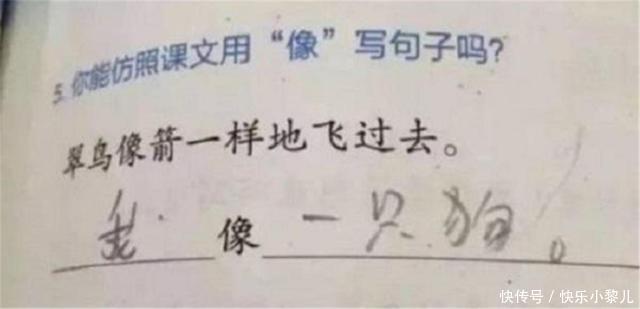 5. 你能仿照课文用“像”写句子吗?
翠鸟像箭一样地飞过去。
像一只狗。
快传号/快乐小黎儿